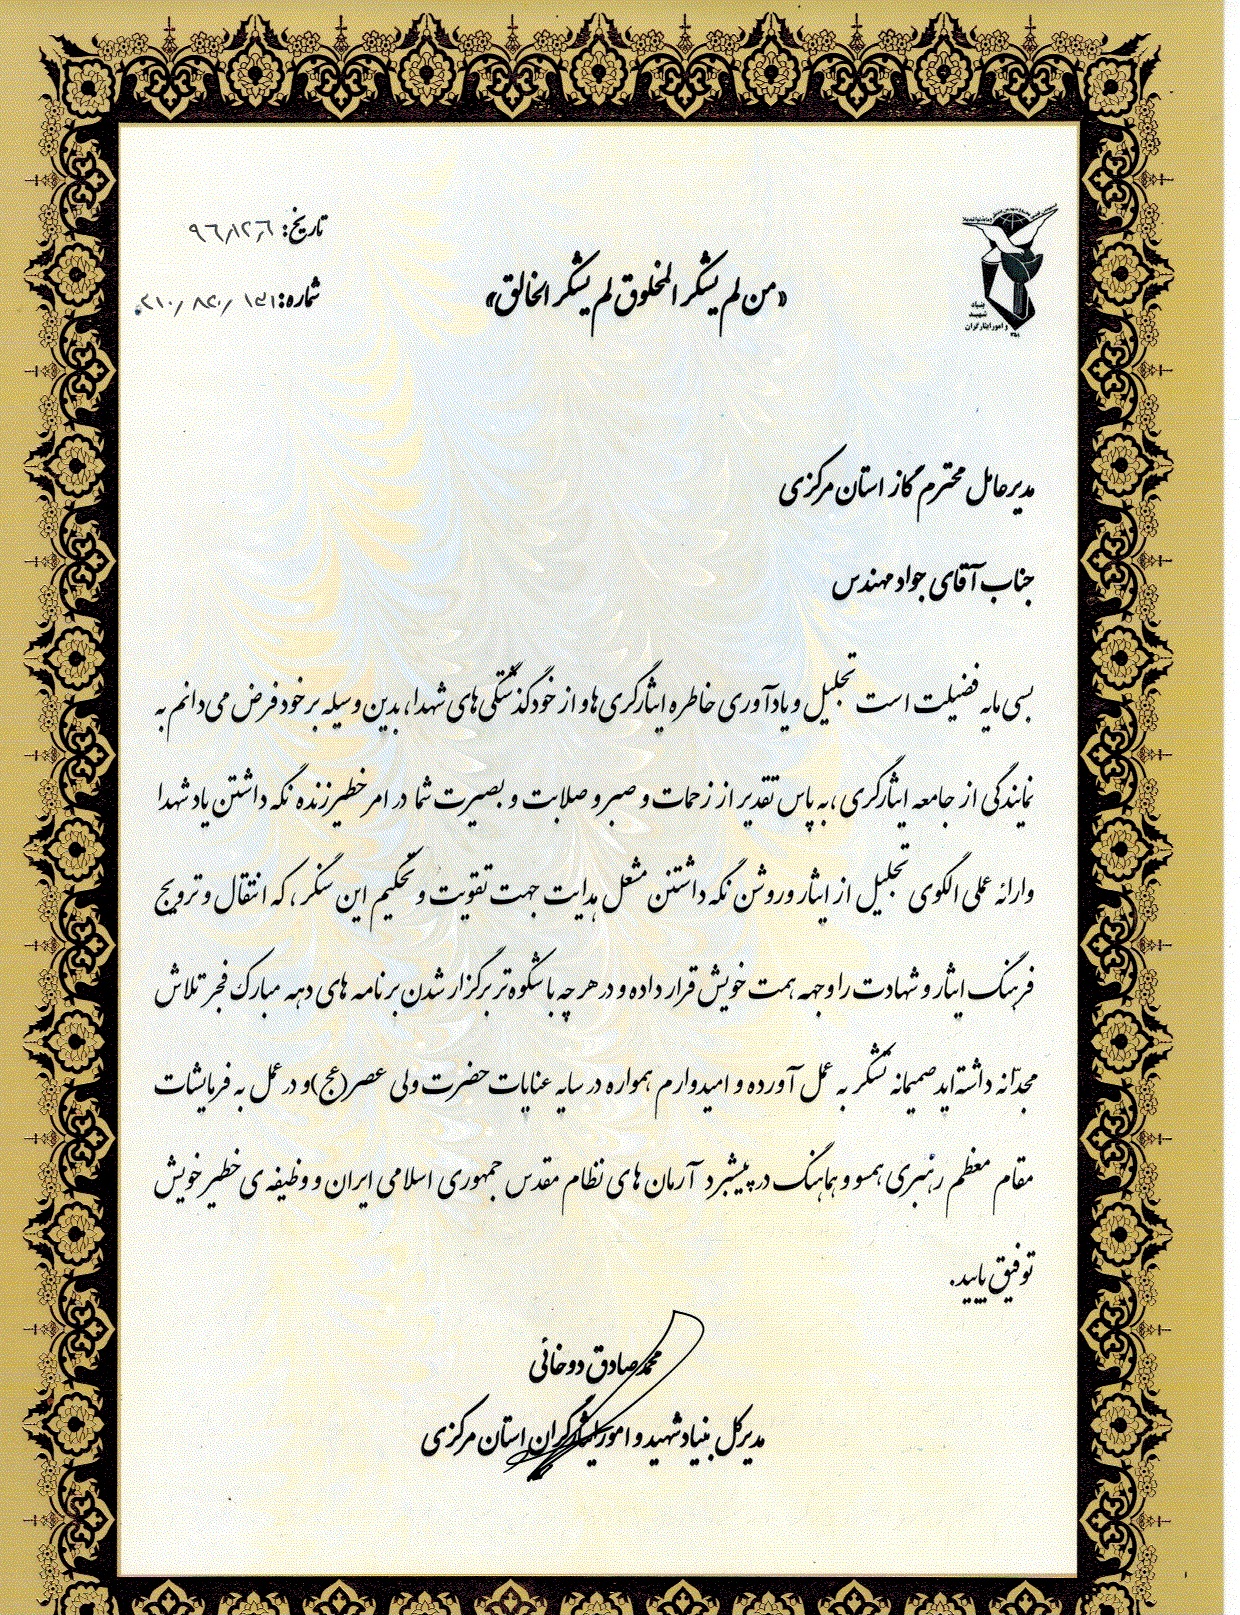 تاریخ: ۹۶/۱۲/۶
شماره:
«من لم یشکر المخلوق لم یشکر الخالق»
بنیاد
شهید
و امور ایثارگران
مدیرعامل محترم گاز استان مرکزی
جناب آقای جواد مهندس
بسی مایه فضیلت است تجلیل و یادآوری خاطره ایثارگری ها و از خودگذشتگی های شهدا، بدین وسیله بر خود فرض می دانم به
نمایندگی از جامعه ایثارگری ،به پاس تقدیر از زحمات و صبر و صلابت و بصیرت شما در امر خطیر زنده نگه داشتن یاد شهدا
وارائه عملی الگوی تجلیل از ایثار و روشن نگه داشتن مشعل هدایت جهت تقویت و تحکیم این سنگر ، که انتقال و ترویج
فرهنگ ایثار و شهادت را وجهه همت خویش قرار داده و در هر چه با شکوه تر برگزار شدن برنامه های دهه مبارک فجر تلاش
مجدّانه داشته اید صمیمانه تشکر به عمل آورده و امیدوارم همواره در سایه عنایات حضرت ولی عصر(عج)و در عمل به فرمایشات
مقام معظم رهبری همسو و هماهنگ در پیشبرد آرمان های نظام مقدس جمهوری اسلامی ایران و وظیفه ی خطیر خویش
توفیق یابید.
محمدصادق دوخائی
مدیرکل بنیاد شهید و امور ایثارگران استان مرکزی